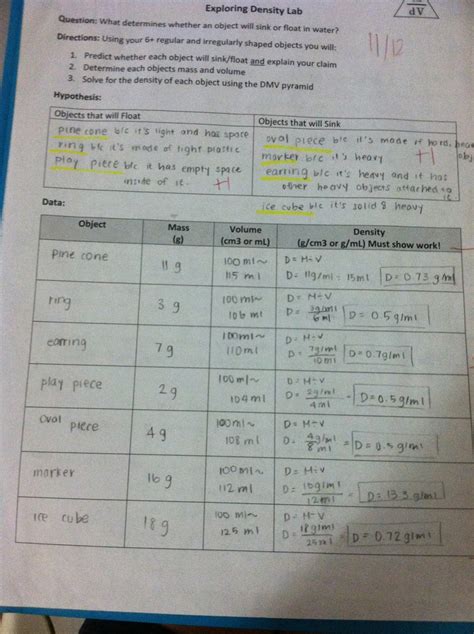 Exploring Density Lab
dV
11/12
Question: What determines whether an object will sink or float in water?
Directions: Using your 6+ regular and irregularly shaped objects you will:
1. Predict whether each object will sink/float and explain your claim
2. Determine each objects mass and volume
3. Solve for the density of each object using the DMV pyramid
Hypothesis:
Objects that will Float
pine cone b/c it's light and has space
ring b/c it's made of light plastic
play piece b/c it has empty space
inside of it. +1
Objects that will Sink
oval piece b/c it's made of hard,
marker b/c it's heavy +1
earring b/c it's heavy and it has
other heavy objects attached to
it
ice cube b/c it's solid & heavy
Data:
Object Mass (g) Volume (cm3 or mL) Density (g/cm3 or g/mL) Must show work!
pine cone 11 g 100 ml~ 115 ml D= M÷V D= 11g/ml ÷ 15ml D= 0.73 g/ml
ring 3 g 100 ml~ 106 ml D= M÷V D= 3g/ml 6 ml D= 0.5 g/ml
earring 7 g 100ml~ 110 ml D= M÷V D= 7g/ml 10 ml D=0.7g/ml
play piece 2g 100 ml~ 104 ml D= M÷V D= 2g/ml 4ml = D=0.5g/ml
oval piece 4g 100ml~ 108 ml D= M÷V D= 4g/ml 8 ml = D=0.5g/ml
marker 16 g 100 ml~ 112 ml D= M÷V D= 16g/ml 12ml = D= 13.3 g/ml
ice cube 18 g 100 ml~ 125 ml D= M÷V D= 18g/ml 25ml = D= 0.72 g/ml